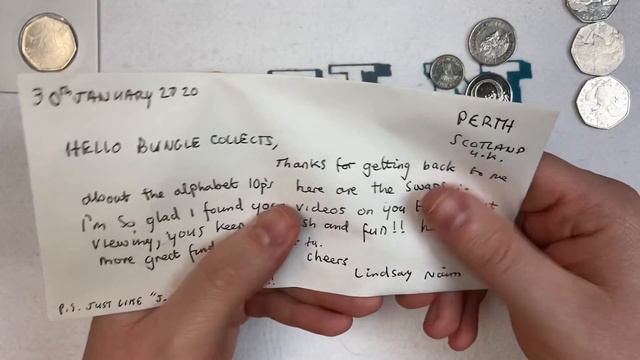 30TH JANUARY 2020
PERTH
SCOTLAND
U.K.
HELLO BUNGLE COLLECTS,
Thanks for getting back to me
about the alphabet 10p's here are the swaps
I'm so glad I found your videos on you
viewing, yous keep and fun!!
more great
cheers
Lindsay
P.S. JUST LIKE